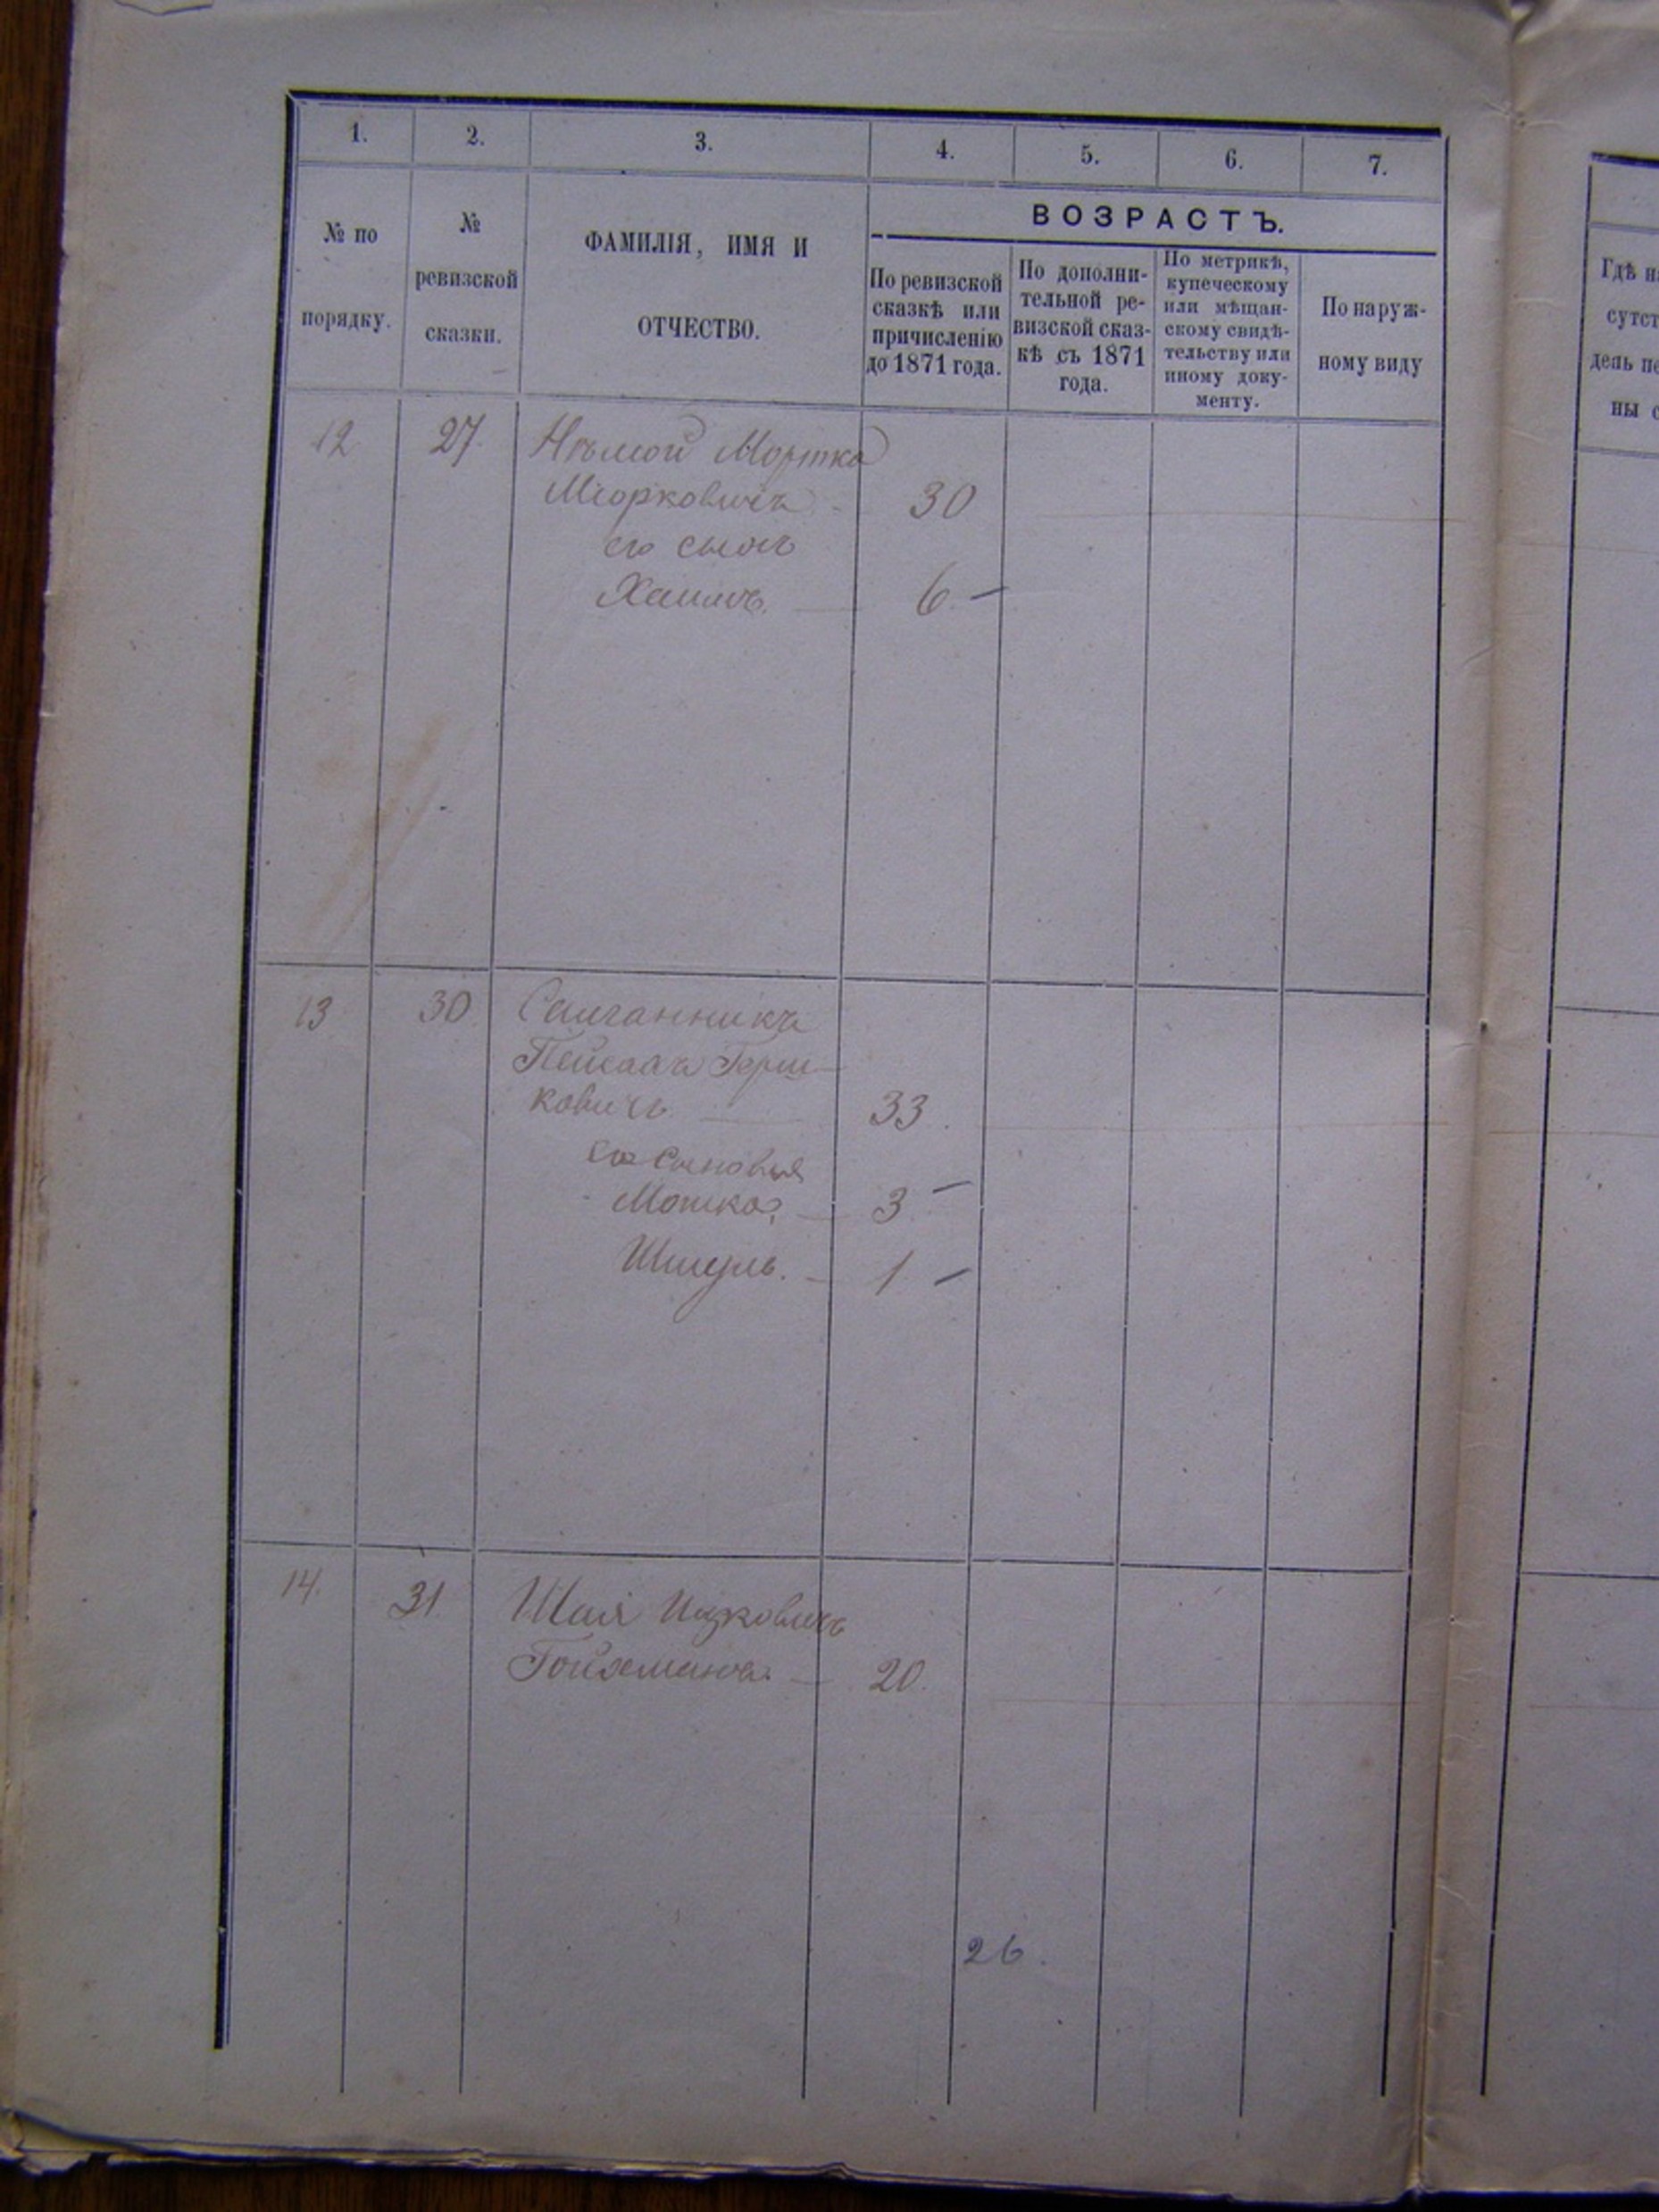 1. 2. 3. 4. 5. 6. 7.
№ по
порядку.
№
ревизской
сказки.
ФАМИЛІЯ, ИМЯ И
ОТЧЕСТВО.
ВОЗРАСТЪ.
По ревизской
сказкѣ или
причисленію
до 1871 года.
По дополни-
тельной ре-
визской сказ-
кѣ съ 1871
года.
По метрикѣ,
купеческому
или мѣщан-
скому свидѣ-
тельству или
иному доку-
менту.
По наруж-
ному виду
Гдѣ н
сутст
день
ны
12 27. Нѣмой Мортко
30
его сынъ
Хаимъ. 6.
13 30 Самганникъ
Пейсахъ Герш-
ковичъ 33.
его сыновья
Мошко, 3
Шмуль. 1
14. 31. Шая Ицковичъ
Гойхманъ. 20.
26.